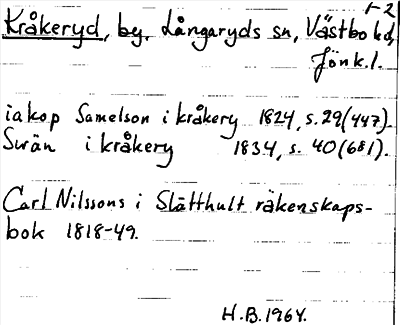 1-2
Kråkeryd, by, Långaryds sn, Västbo hd,
Jönk.l.
iakop Samelson i kråkery 1824, s. 29(447).
Swän i kråkery 1834, s. 40(681).
Carl Nilssons i Slätthult räkenskaps-
bok 1818-49.
H.B. 1964.